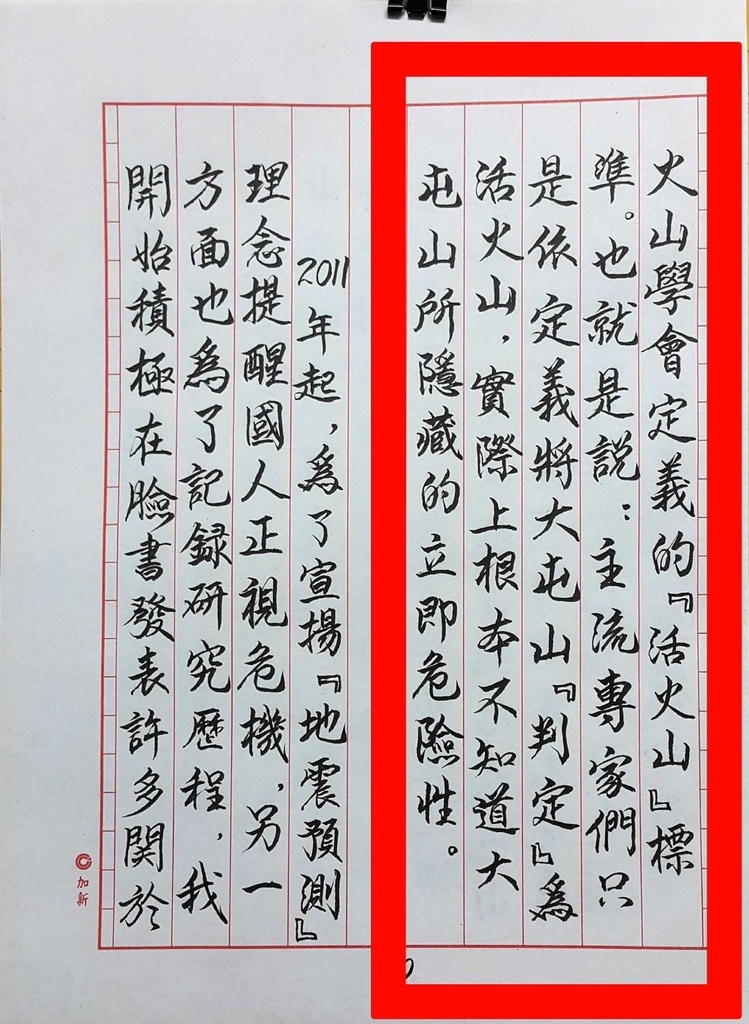 火山學會定義的『活火山』標
準。也就是説：主流專家們只
是依定義將大屯山『判定』為
活火山，實際上根本不知道大
屯山所隱藏的立即危險性。
2011年起，為了宣揚『地震預測』
理念提醒國人正視危機，另一
方面也為了記録研究歷程，我
開始積極在臉書發表許多関於
加新